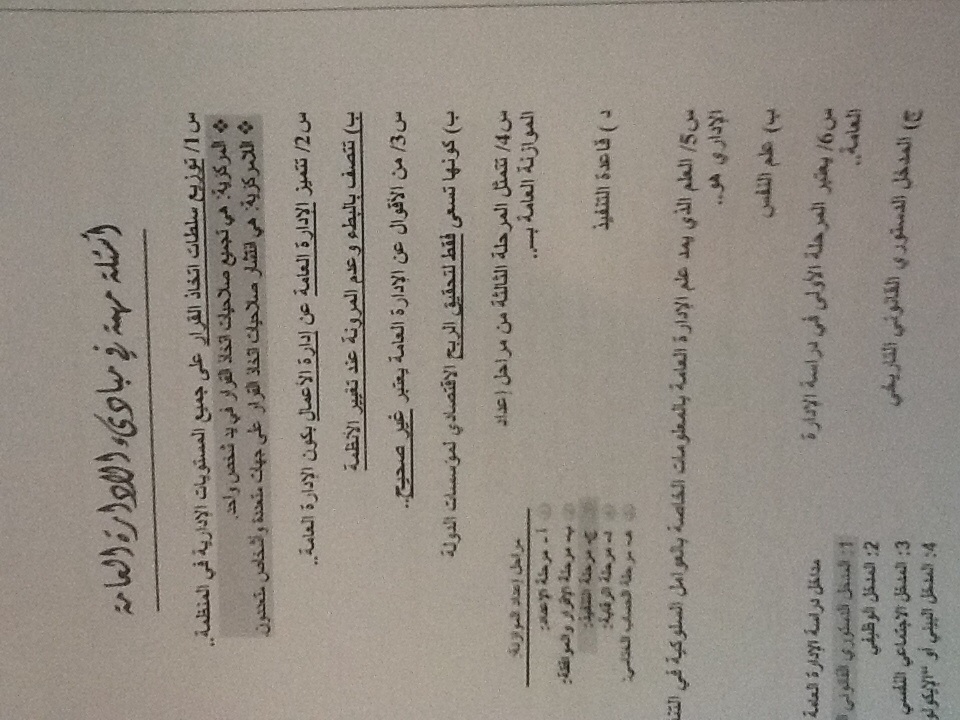 أسئلة مهمة في مبادئ الإدارة العامة
س1/ توزيع سلطات اتخاذ القرار على جميع المستويات الإدارية في المنظمة..
❖ المركزية: هي تجميع صلاحيات اتخاذ القرار في يد شخص واحد.
❖ اللامركزية: هي انتشار صلاحيات اتخاذ القرار على جهات متعددة وأشخاص متعددون
س2/ تتميز الإدارة العامة عن إدارة الأعمال بكون الإدارة العامة..
ب) تتصف بالبطء وعدم المرونة عند تغيير الأنظمة
س3/ من الأقوال عن الإدارة العامة يعتبر غير صحيح..
ب) كونها تسعى فقط لتحقيق الربح الاقتصادي لمؤسسات الدولة
س4/ تتمثل المرحلة الثالثة من مراحل إعداد
الموازنة العامة بـ..
د) قاعدة التنفيذ
مراحل إعداد الموازنة:
أ- مرحلة الإعداد:
ب- مرحلة الإقرار والموافقة:
ج- مرحلة التنفيذ:
د- مرحلة الرقابة:
هـ- مرحلة الحساب الختامي:
س5/ العلم الذي يمد علم الإدارة العامة بالمعلومات الخاصة بالعوامل السلوكية في
الإداري هو..
ب) علم النفس
س6/ يعتبر المرحلة الأولى في دراسة الإدارة
العامة..
ج) المدخل الدستوري القانوني التاريخي
مداخل دراسة الإدارة العامة
1: المدخل الدستوري القانوني
2: المدخل الوظيفي
3: المدخل الاجتماعي النفسي
4: المدخل البيئي أو